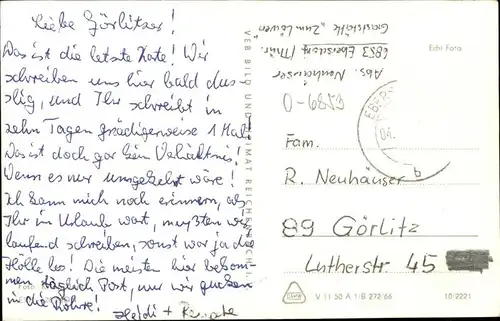 Liebe Görlitzer!
Das ist die letzte Karte! Wir
schreiben uns hier bald dus-
slig, und Ihr schreibt in
zehn Tagen gnädigerweise 1 Mal!
Das ist doch gar kein Verhältnis!
Wenn es nur umgekehrt wäre!
Ich kann mich noch erinnern, als
Ihr im Urlaub wart, mußten wir
laufend schreiben, sonst war ja die
Hölle los! Die meisten hier bekom-
men täglich Post, nur wir gucken
in die Röhre!
Heidi + Renate
Foto
VEB BILD UND HEIMAT REICHENBACH
Abs. Neuhäuser
6853 Ebersdorf/Thür.
Gaststätte "Zum Löwen"
Echt Foto
O-6853
EBERS
04.
a
Fam.
R. Neuhäuser
89 Görlitz
Lutherstr. 45
V 11 50 A 1/B 272/66
10/2221